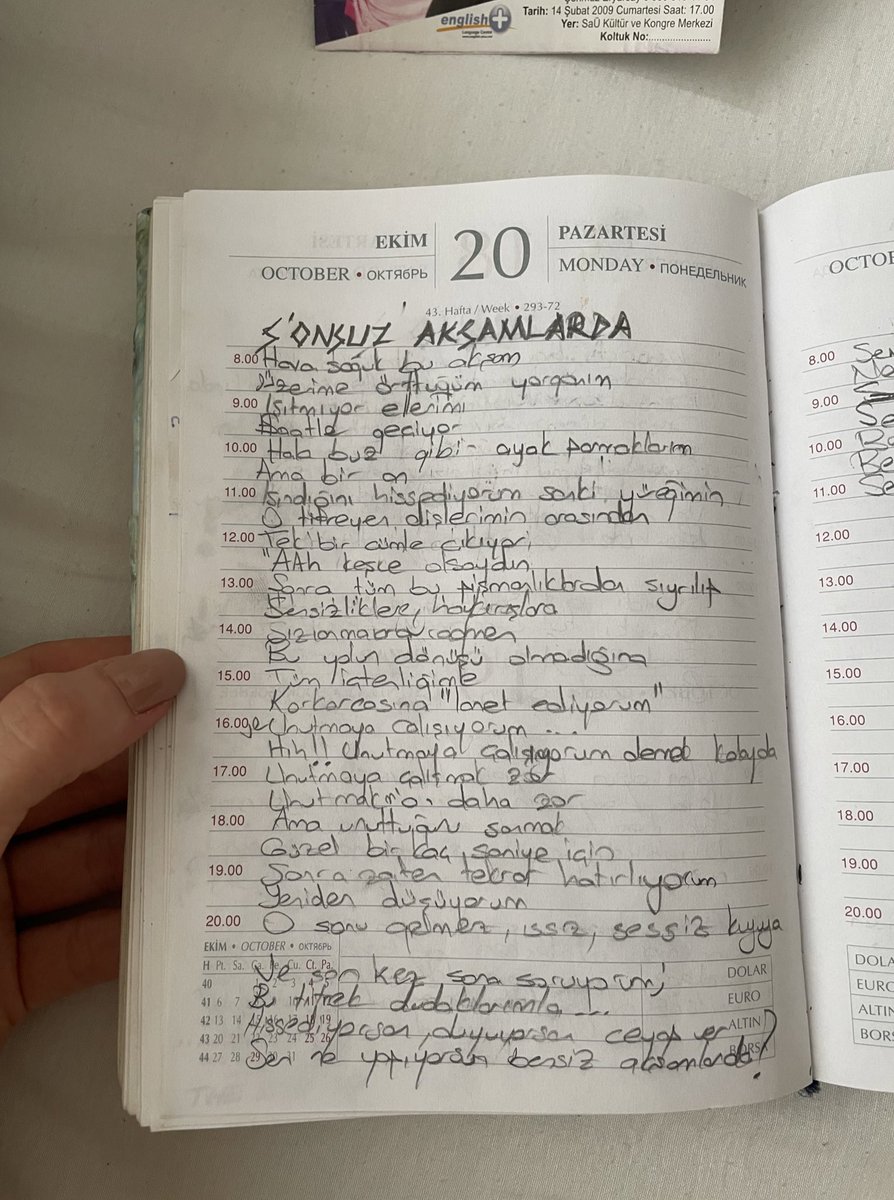 english+
Language Centre
Tarih: 14 Şubat 2009 Cumartesi Saat: 17.00
Yer: SaÜ Kültür ve Kongre Merkezi
Koltuk No:
EKİM 20 PAZARTESİ
OCTOBER • ОКТЯбРЬ MONDAY • ПОНЕДЕЛЬНИК
43. Hafta / Week • 293-72
S'ONSUZ' AKŞAMLARDA
8.00 Hava soğuk bu akşam
Üzerime örttüğüm yorganım
9.00 Isıtmıyor elerimi
Saatler geçiyor
10.00 Hala buz gibi - ayak parmaklarım
Ama bir an
11.00 Isındığını hissediyorum sanki yüreğimin
O titreyen dişlerimin arasından
12.00 Tek bir cümle çıkıyor,
"AAh keşce olsaydın
13.00 Sonra tüm bu pişmanlıklardan sıyrılıp
Sensizliklere, haykırışlara
14.00 Sızlanmalara rağmen
Bu yolun dönüşü olmadığına
15.00 Tüm içtenliğimle
Korkarcasına "lanet ediyorum"
16.00 Unutmaya çalışıyorum ...
Hıh!! Unutmaya çalışıyorum demek kolayda
17.00 Unutmaya çalışmak zor
Unutmak daha zor
18.00 Ama unuttuğunu sanmak
Güzel bir kaç saniye için
19.00 Sonra zaten tekrar hatırlıyorum
Yeniden düşüyorum
20.00 O sonu gelmez, ıssız, sessiz kıyıya
EKİM • OCTOBER • ОКТЯбРЬ
Ve son kez sana soruyorum;
DOLAR
Bu titrek dudaklarımla ...
EURO
Hissediyorsan, duyuyorsan cevap ver
ALTIN
Sen ne yapıyorsun bensiz akşamlarda?
BORSA
OCTOBE
8.00 Sen
9.00
10.00
11.00 Se
12.00
13.00
14.00
15.00
16.00
17.00
18.00
19.00
20.00
DOLA
EURO
ALTIN
BORS